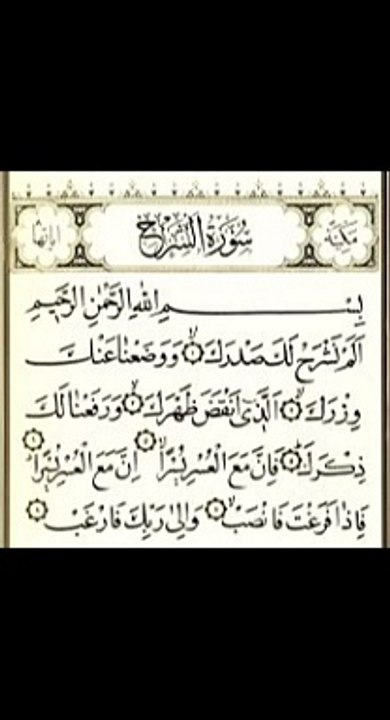 مكية سورة الشرح اياتها
بِسْمِ اللهِ الرَّحْمٰنِ الرَّحِيمِ
اَلَمْ نَشْرَحْ لَكَ صَدْرَكَ وَوَضَعْنَا عَنْكَ
وِزْرَكَ اَلَّذِىٓ اَنْقَضَ ظَهْرَكَ وَرَفَعْنَا لَكَ
ذِكْرَكَ فَاِنَّ مَعَ الْعُسْرِ يُسْرًا اِنَّ مَعَ الْعُسْرِ يُسْرًا
فَاِذَا فَرَغْتَ فَانْصَبْ وَاِلٰى رَبِّكَ فَارْغَبْ